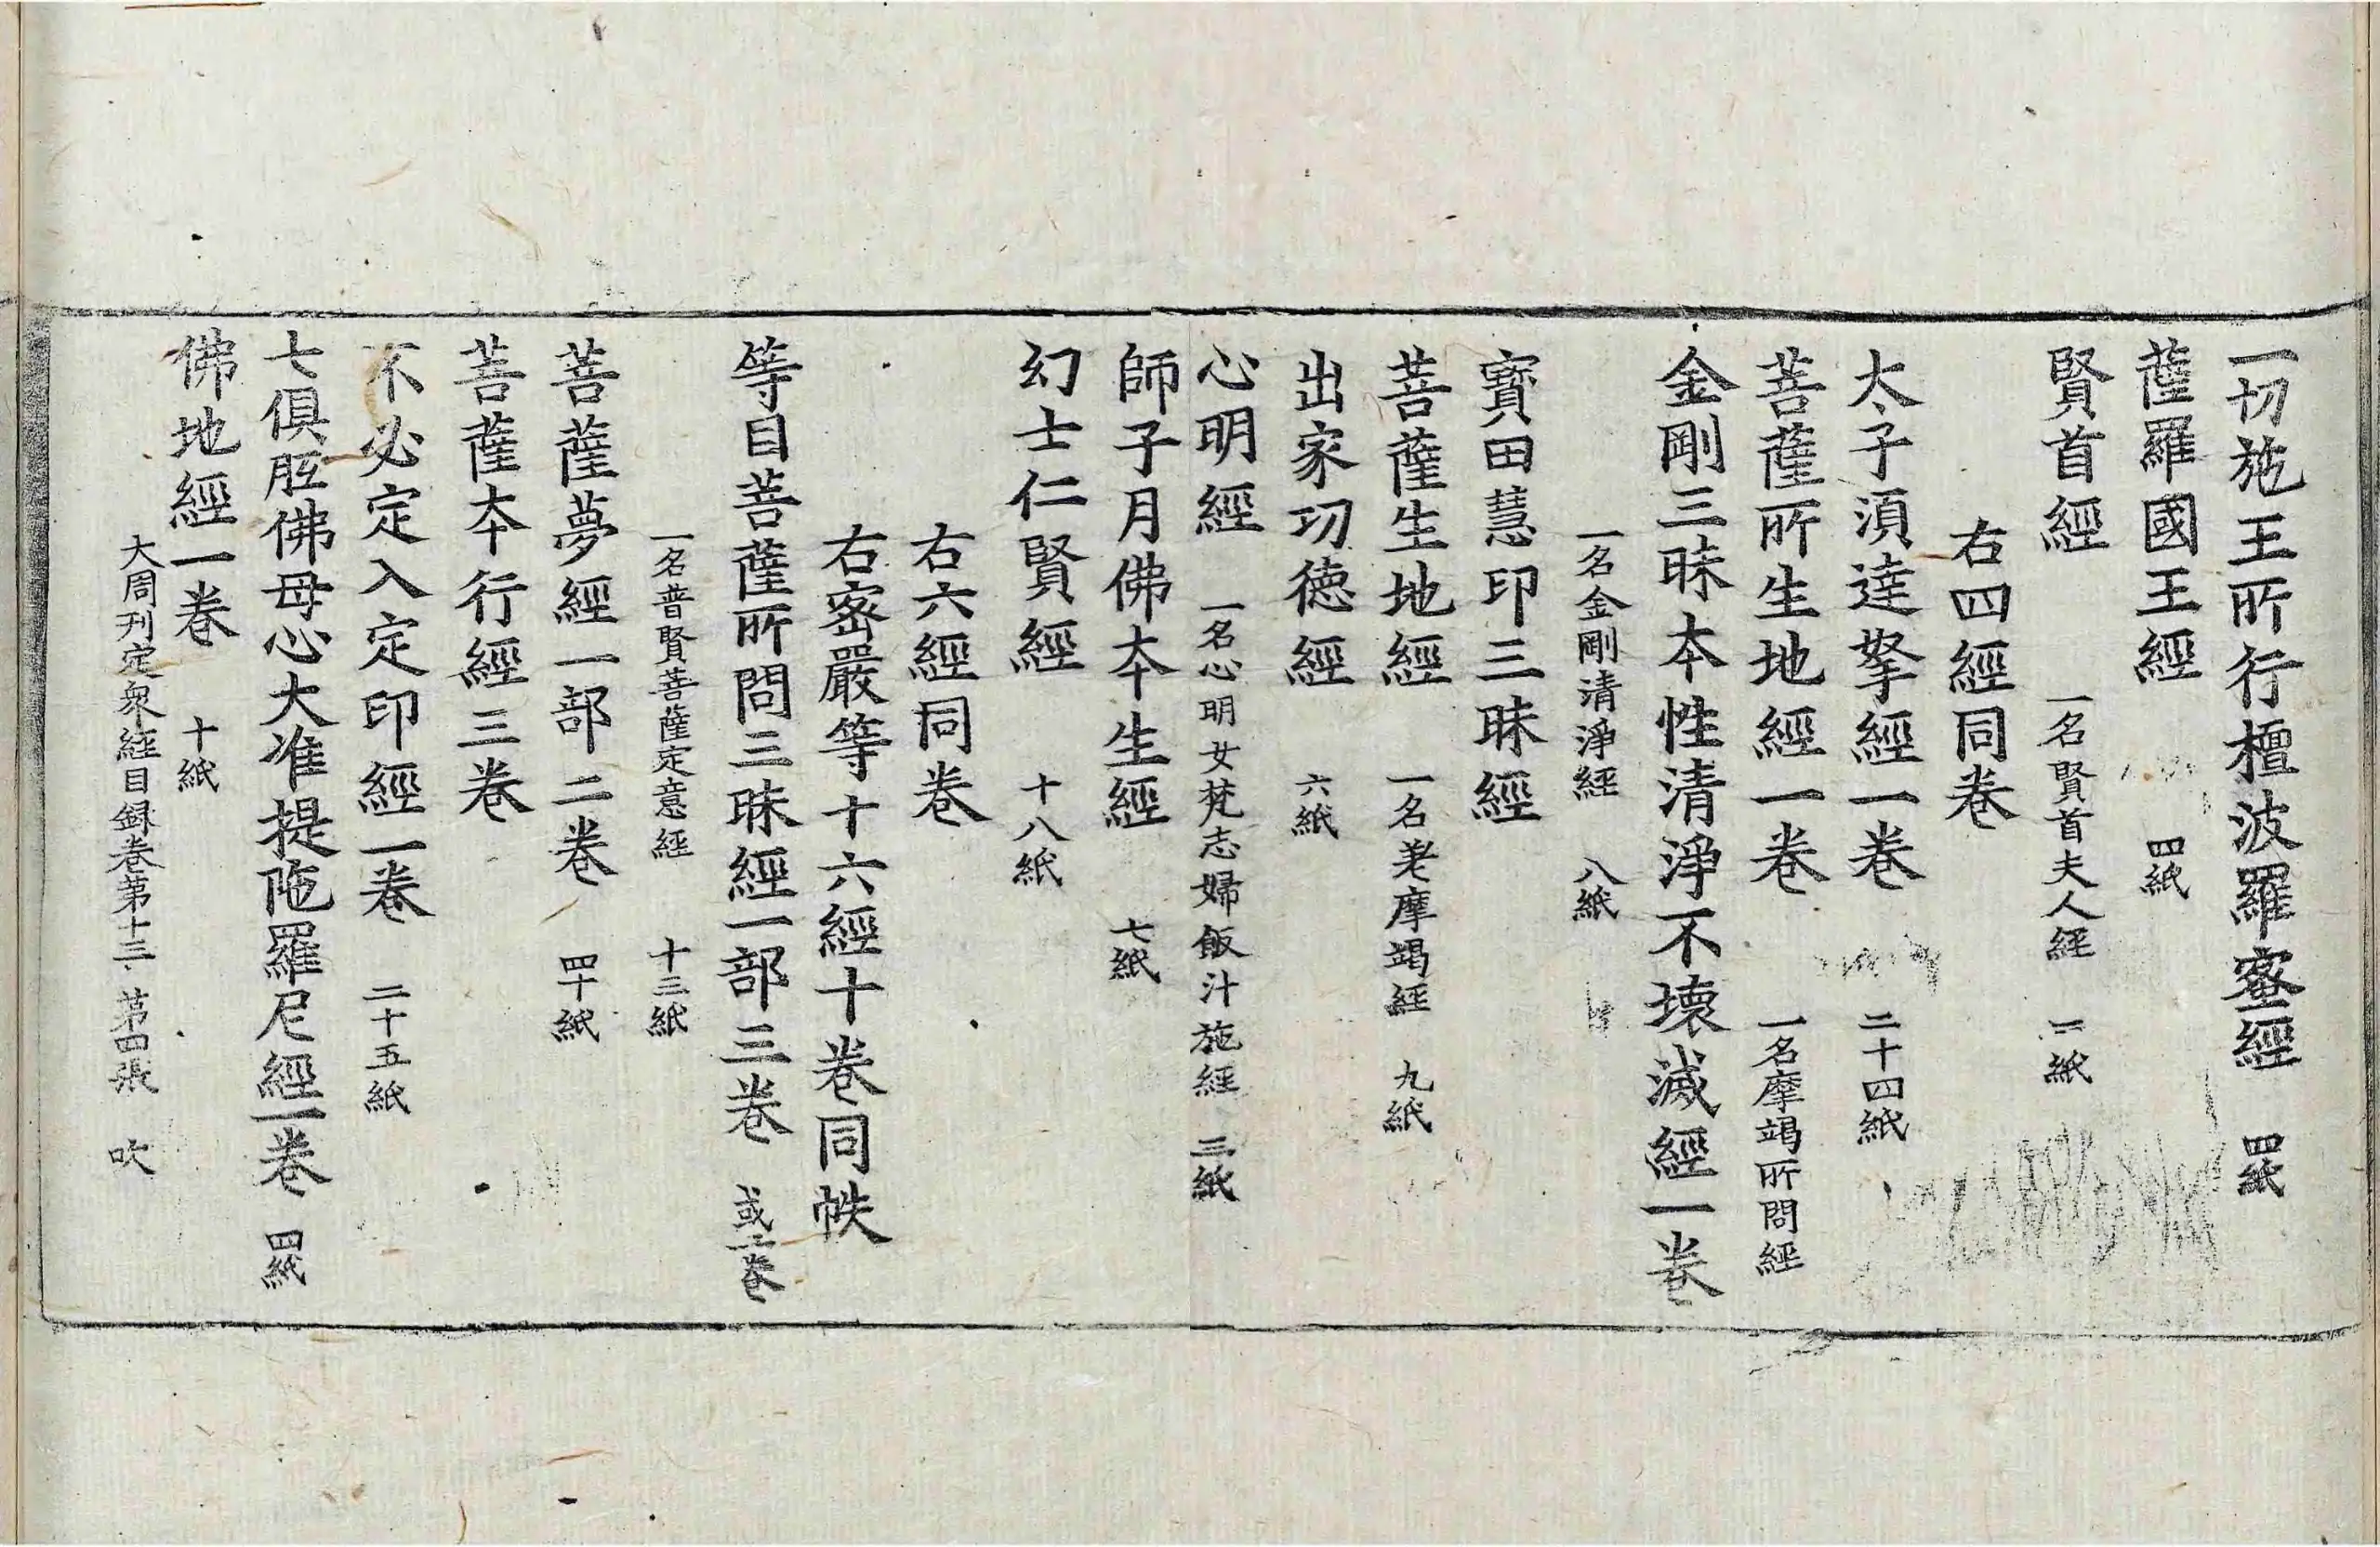 一切施王所行檀波羅蜜經 四紙
薩羅國王經 四紙
賢首經 一名賢首夫人經 二紙
右四經同卷
太子湏達拏經一卷 二十四紙
菩薩所生地經一卷 一名摩竭所問經
金剛三昧本性清淨不壞滅經一卷
一名金剛清淨經 八紙
寶田慧印三昧經
菩薩生地經 一名差摩竭經 九紙
出家功德經 六紙
心明經 一名心明女梵志婦飯汁施經 三紙
師子月佛本生經 七紙
幻士仁賢經 十八紙
右六經同卷
右密嚴等十六經十卷同帙
等目菩薩所問三昧經一部三卷 或二卷
一名普賢菩薩定意經 十三紙
菩薩夢經一部二卷 四十紙
菩薩本行經三卷
不必定入定印經一卷 二十五紙
七俱胝佛母心大准提陁羅尼經一卷 四紙
佛地經一卷 十紙
大周刊定衆經目録卷第十三 第四張 吹